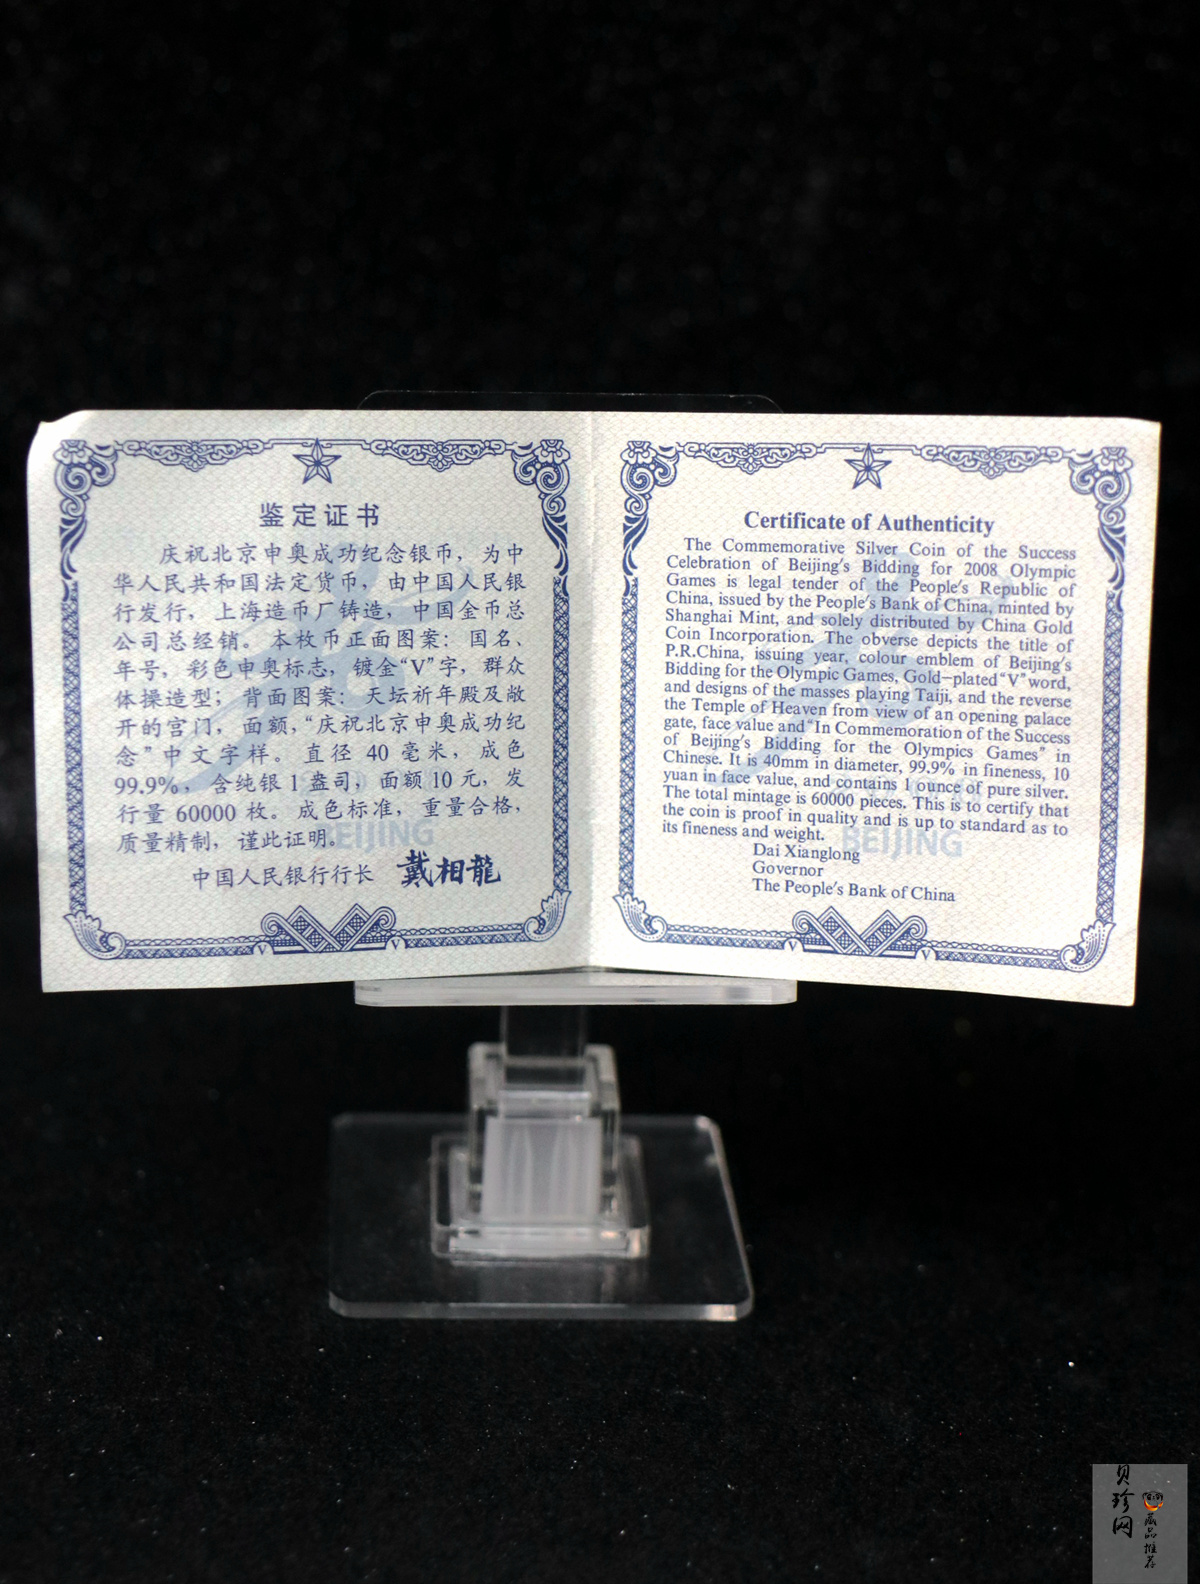 鉴定证书
庆祝北京申奥成功纪念银币，为中
华人民共和国法定货币，由中国人民银
行发行，上海造币厂铸造，中国金币总
公司总经销。本枚币正面图案：国名、
年号，彩色申奥标志，镀金“V”字，群众
体操造型；背面图案：天坛祈年殿及敞
开的宫门，面额，“庆祝北京申奥成功纪
念”中文字样。直径 40 毫米，成色
99.9%，含纯银 1 盎司，面额 10 元，发
行量 60000 枚。成色标准，重量合格，
质量精制，谨此证明。
BEIJING
中国人民银行行长 戴相龍
V V
Certificate of Authenticity
The Commemorative Silver Coin of the Success
Celebration of Beijing's Bidding for 2008 Olympic
Games is legal tender of the People's Republic of
China, issued by the People's Bank of China, minted by
Shanghai Mint, and solely distributed by China Gold
Coin Incorporation. The obverse depicts the title of
P.R.China, issuing year, colour emblem of Beijing's
Bidding for the Olympic Games, Gold-plated “V” word,
and designs of the masses playing Taiji, and the reverse
the Temple of Heaven from view of an opening palace
gate, face value and “In Commemoration of the Success
of Beijing's Bidding for the Olympics Games” in
Chinese. It is 40mm in diameter, 99.9% in fineness, 10
yuan in face value, and contains 1 ounce of pure silver.
The total mintage is 60000 pieces. This is to certify that
the coin is proof in quality and is up to standard as to
its fineness and weight.
BEIJING
Dai Xianglong
Governor
The People's Bank of China
V V
贝珍网
藏品推荐